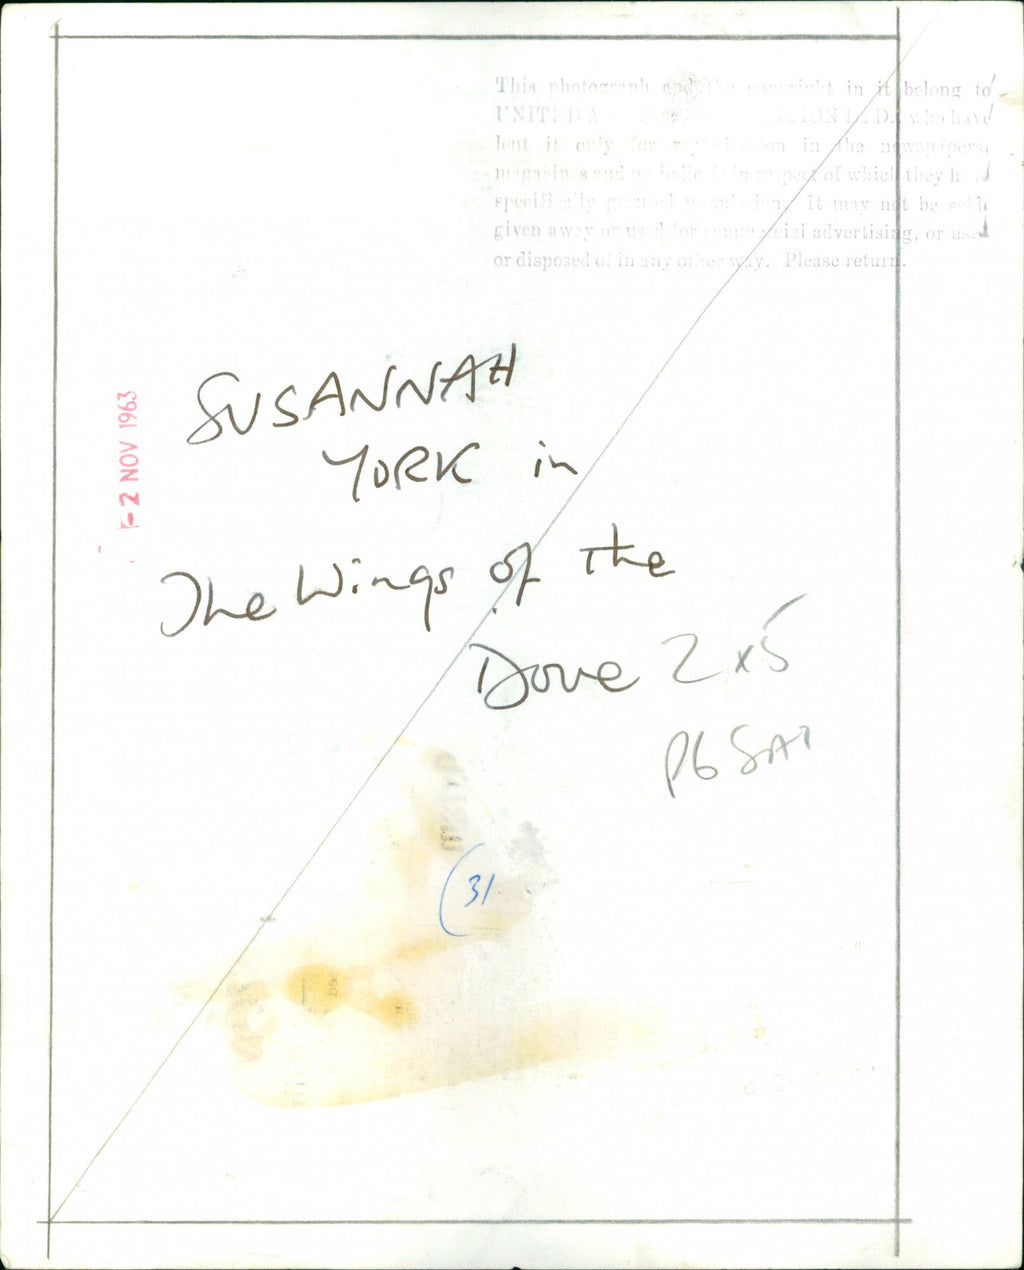 This photograph and the copyright in it belong to
UNITED LTD., who have
lent it only for reproduction in the newspapers,
magazines and periodicals in respect of which they have
specifically granted permission. It may not be sold,
given away or used for commercial advertising, or used
or disposed of in any other way. Please return.
- 2 NOV 1963
SUSANNAH
YORK in
The Wings of the
Dove 2x5
P6 SAT
(31